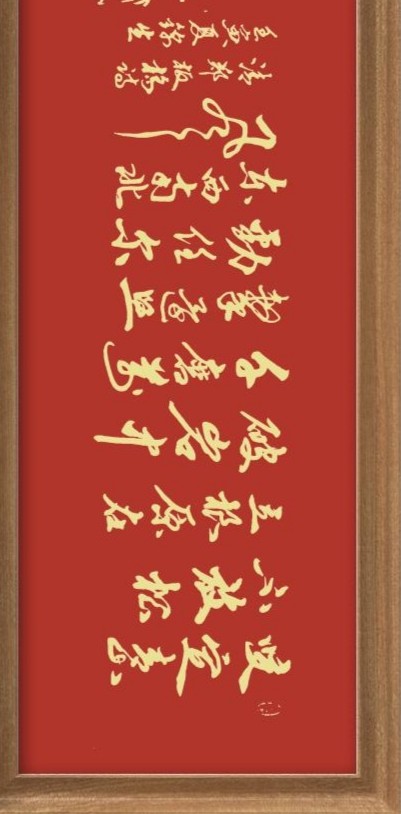 咬定青山
不放松
立根原在
破岩中
千磨萬
擊还坚
勁任尔
东西南北
风
清郑板橋詩